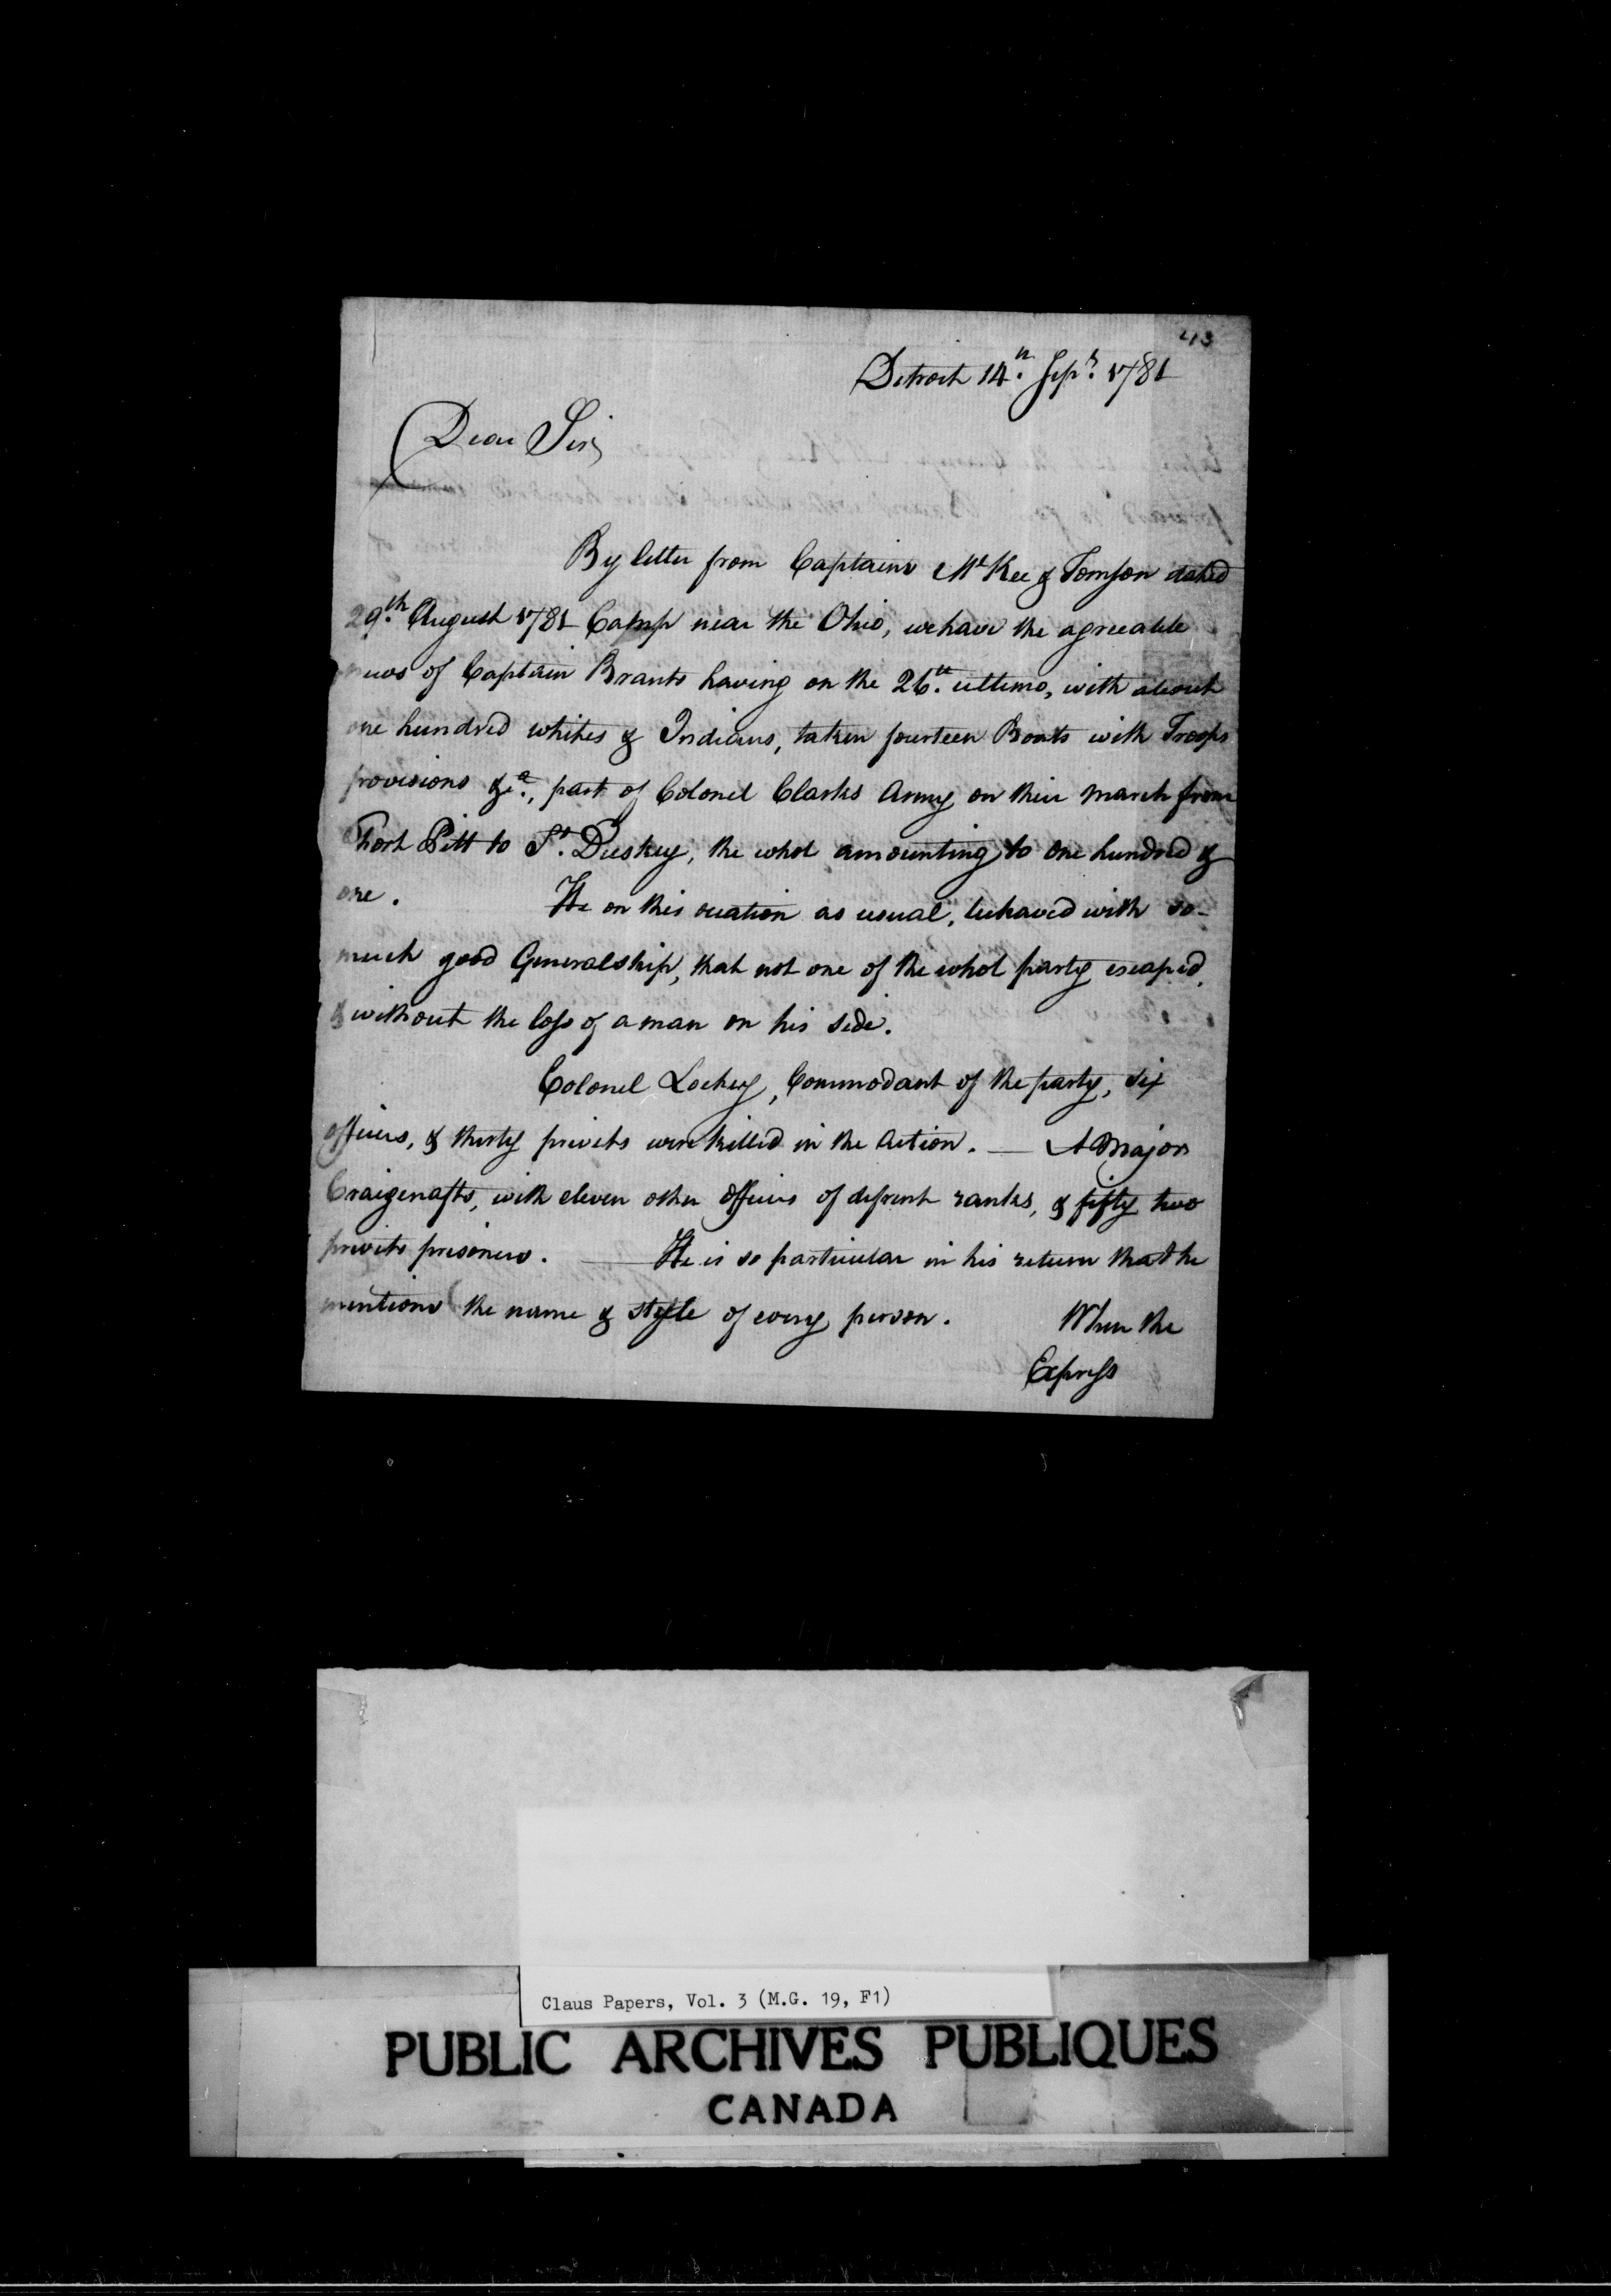 43
Detroit 14th. Sepr. 1781
Dear Sir,
By letter from Captains McKee & Tomson dated
29th. August 1781 Camp near the Ohio, we have the agreeable
news of Captain Brants having on the 26th. ultimo, with about
one hundred whites & Indians, taken fourteen Boats with Troops
provisions &ca., part of Colonel Clarks Army on their march from
Fort Pitt to St. Duskey, the whol amounting to one hundred &
one. He on this ocation as usual, behaved with so-
much good Generalship, that not one of the whol party escaped,
& without the loss of a man on his side.
Colonel Lochey, Commodant of the party, six
officers, & thirty privets were killed in the Action. — A Major
Craigenafts, with eleven other officers of defrent ranks, & fifty two
privets prisoners. — He is so particular in his return that he
mentions the name & style of every person. When the
Express
Claus Papers, Vol. 3 (M.G. 19, F1)
PUBLIC ARCHIVES PUBLIQUES
CANADA